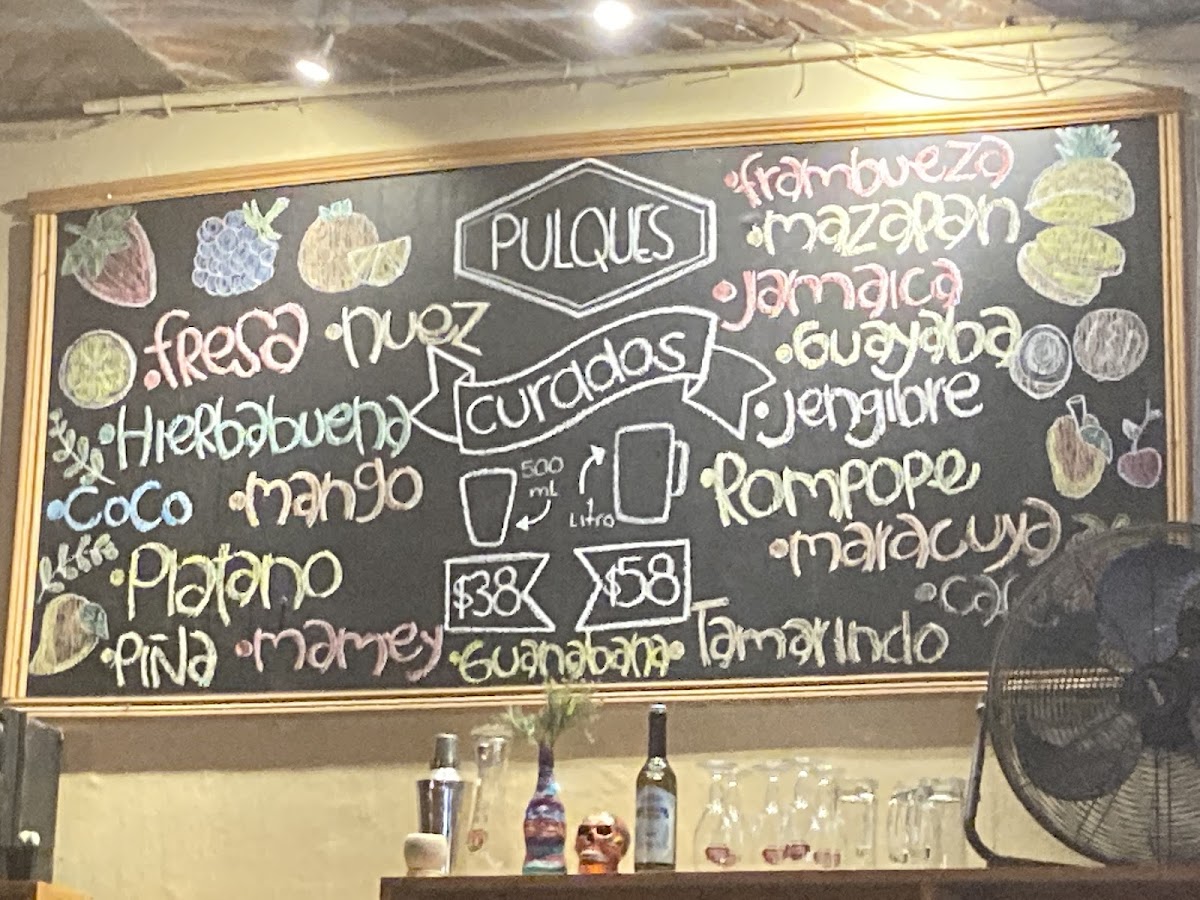 PULQUES
curados
• fresa • nuez
• Hierbabuena
• coco • mango
• Platano
• Piña • mamey • Guanabana • Tamarindo
500 mL
1 Litro
$38
$58
• frambueza
• mazapan
• Jamaica
• Guayaba
• Jengibre
• Rompope
• maracuya